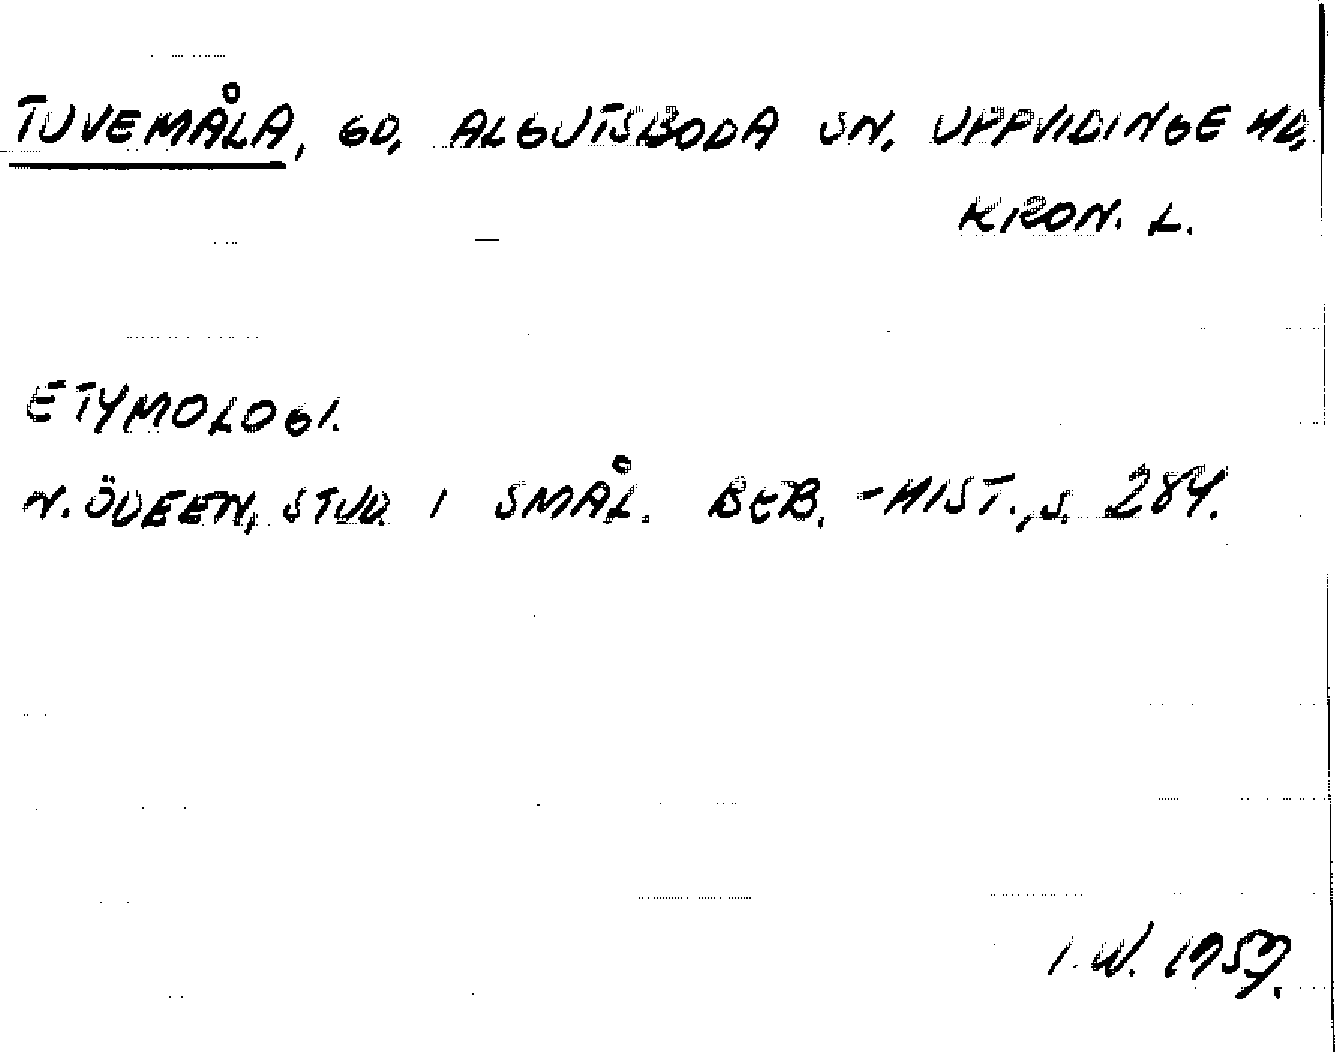 TUVEMÅLA, GD, ALGUTSBODA SN, UPPVIDINGE HD,
KRON. L.
ETYMOLOGI.
N. ÖDEEN, STUD. I SMÅL. BEB.-HIST., S. 284.
I.W. 1959.